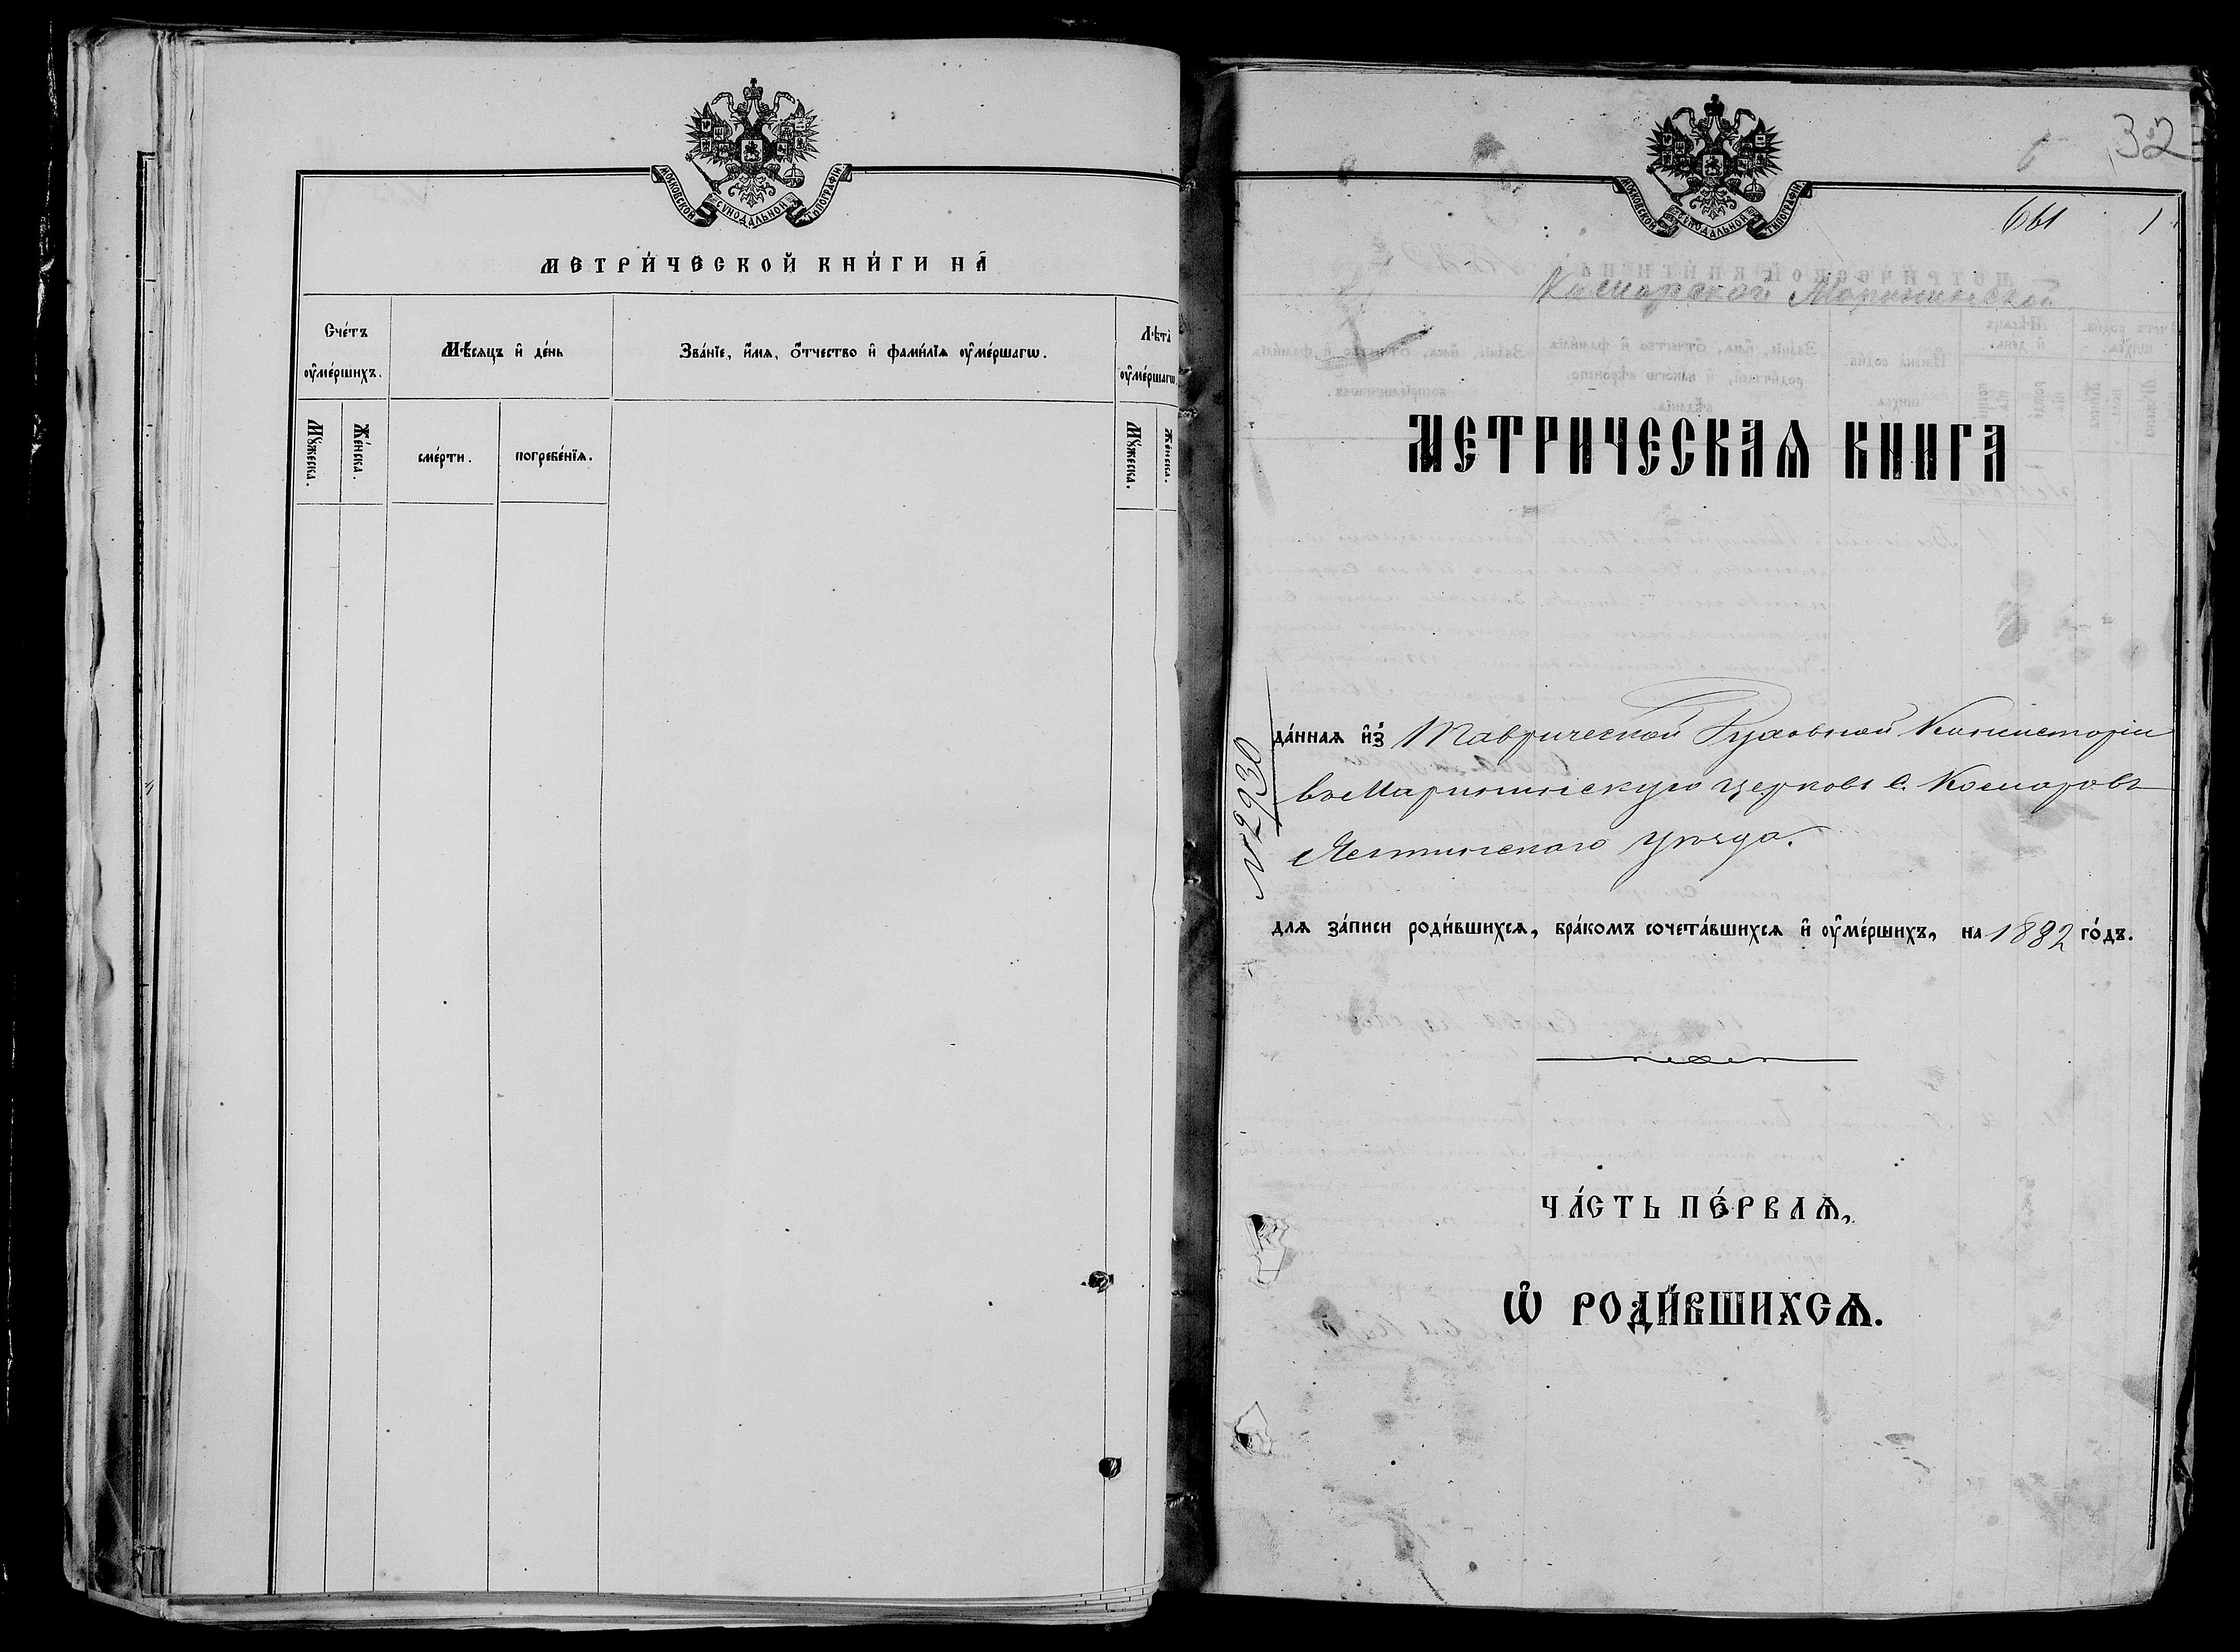 МОСКОВСКОЙ СѴНОДАЛЬНОЙ ТѴПОГРАФІИ
МЕТРИ́ЧЕСКОЙ КНИ́ГИ НА̀
Сче́тъ ᲂу҆ме́ршихъ.
Мѣ́сяцъ и҆ де́нь
Зва́нїе, и҆́мѧ, ѻ҆́тчество и҆ фами́лїѧ ᲂу҆ме́ршагѡ.
Лѣ́та ᲂу҆ме́ршагѡ
Мꙋ́жеска.
Же́нска.
сме́рти.
погребе́нїѧ.
Мꙋ́жеска.
Же́нска.
32
МОСКОВСКОЙ СѴНОДАЛЬНОЙ ТИПОГРАФІИ
661
1
МЕТРИЧЕСКАѦ КНИГА
№ 2930
да́ннаѧ и҆з̾ Таврической Духовной Консисторіи
въ Маріинскую церковь с. Космаровъ
Ялтинскаго уѣзда.
длѧ за́писи роди́вшихсѧ, бра́комъ сочета́вшихсѧ и҆ ᲂу҆ме́ршихъ, на 1882 го́дъ.
ЧА́СТЬ ПЕ́РВАѦ,
Ѡ҆ РОДИ́ВШИХСѦ.